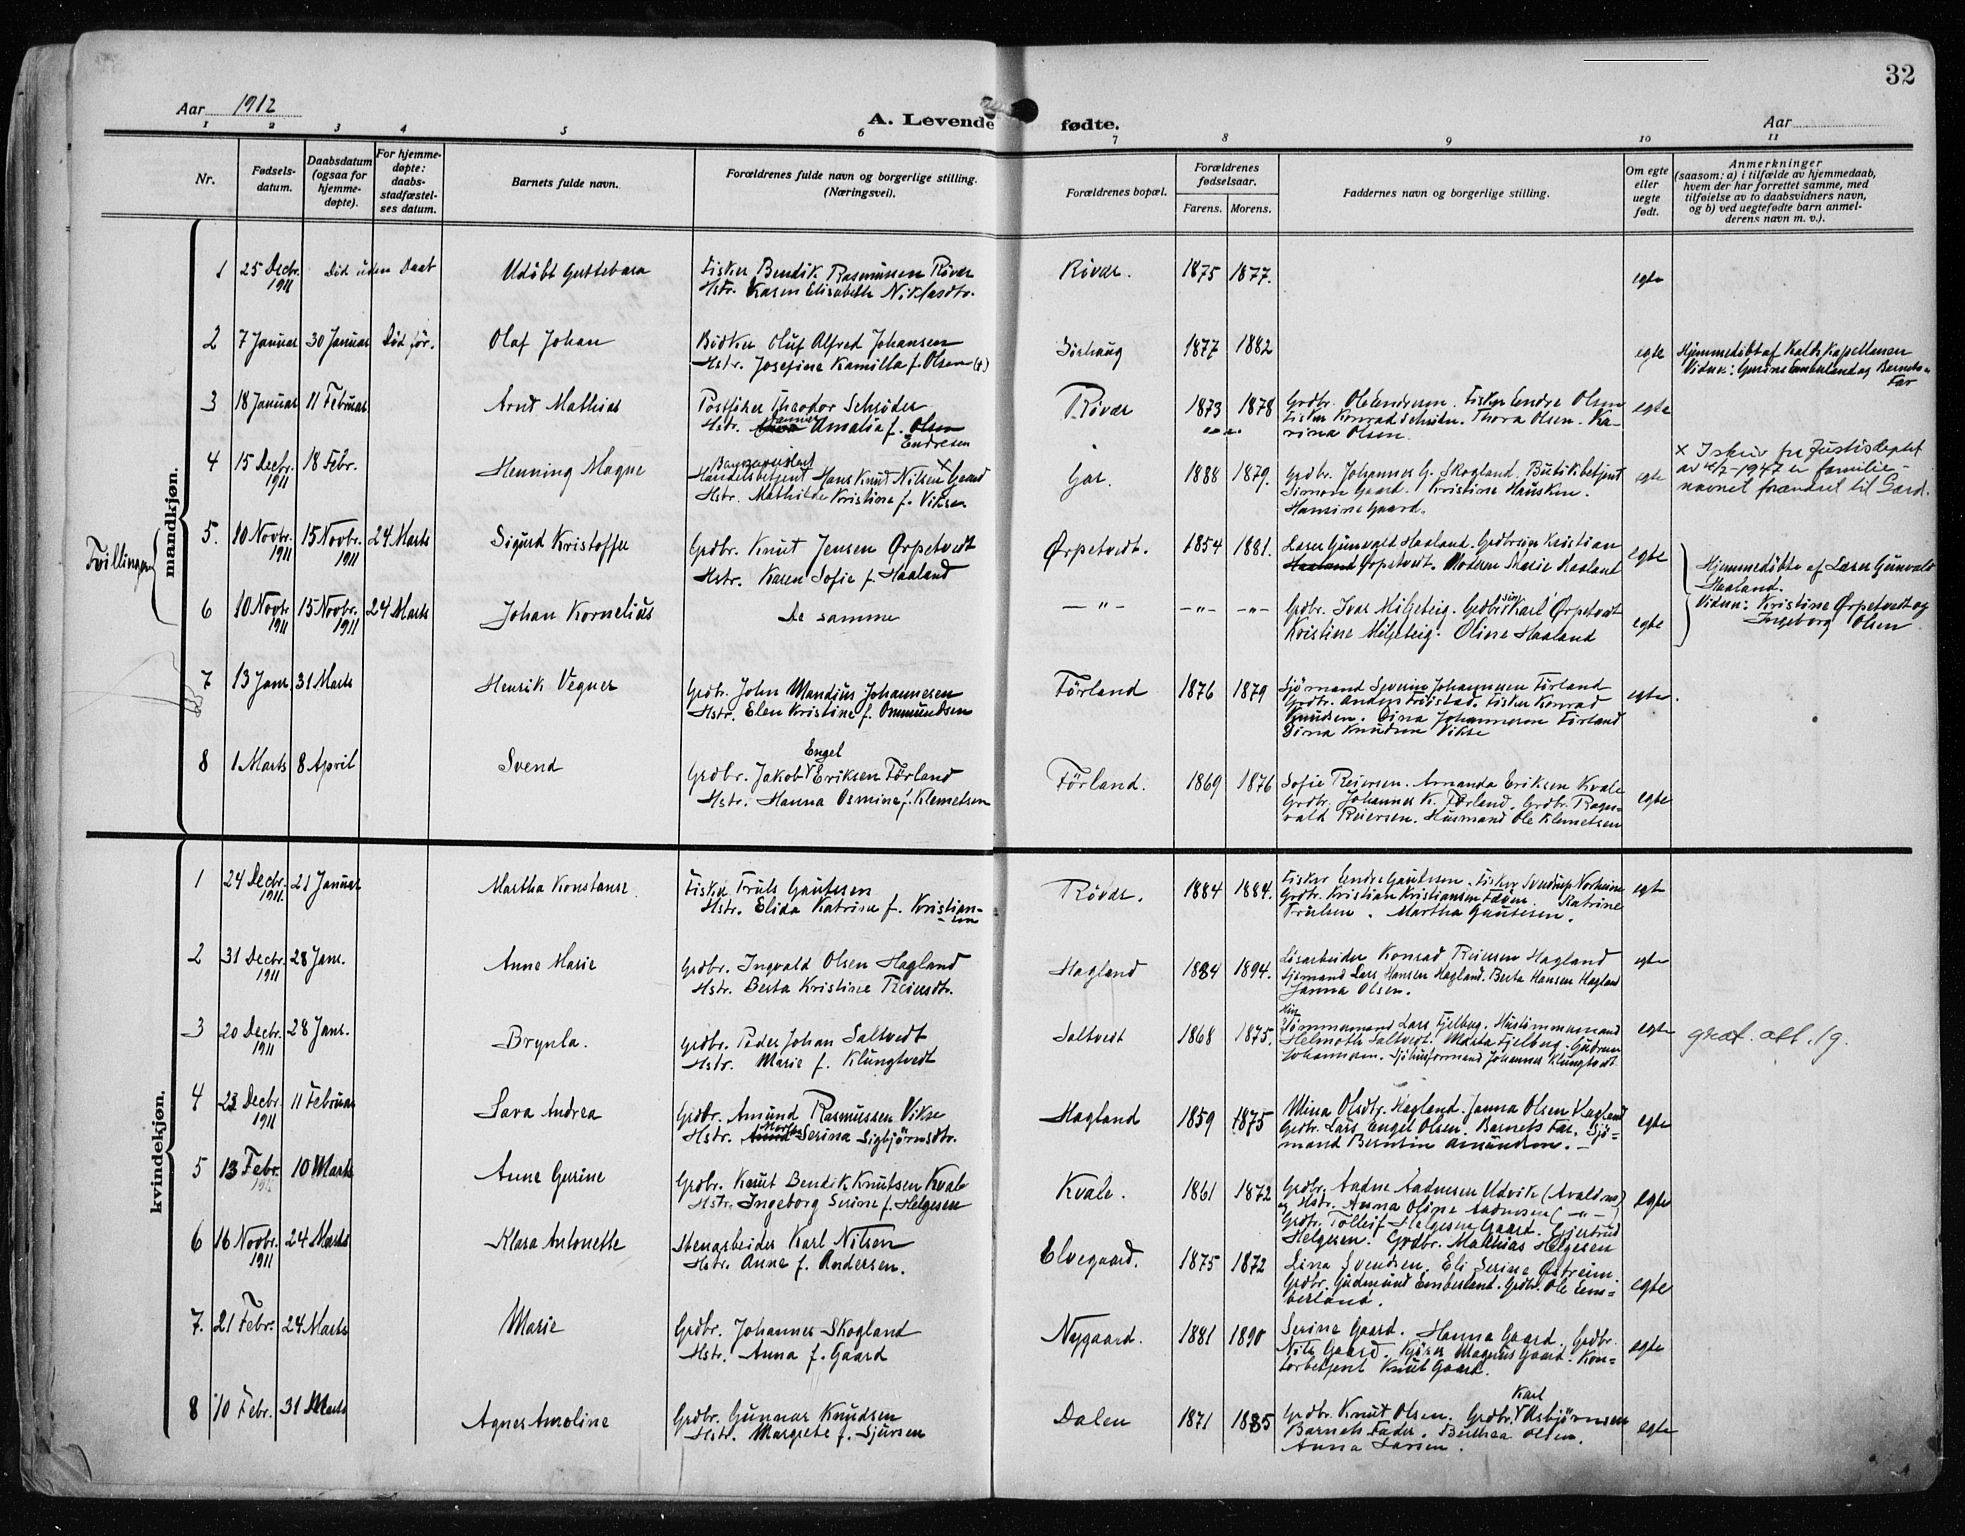 32
Aar 1912
A. Levende fødte.
Aar
1 2 3 4 5 6 7 8 9 10 11
Nr.
Fødsels-
datum.
Daabsdatum
(ogsaa for
hjemme-
døpte).
For hjemme-
døpte:
daabs-
stadfæstel-
ses datum.
Barnets fulde navn.
Forældrenes fulde navn og borgerlige stilling.
(Næringsvei).
Forældrenes bopæl.
Forældrenes
fødselsaar.
Farens. Morens.
Faddernes navn og borgerlige stilling.
Om egte
eller
uegte
født.
Anmerkninger
(saasom: a) i tilfælde av hjemmedaab,
hvem der har forrettet samme, med
tilføielse av to daabsvidners navn,
og b) ved uegtefødte barn anmel-
derens navn m. v.).
mandkjøn.
1 25 Decbr. 1911 Død uden Daab Udøbt Guttebarn
Fisker Bendik Rasmussen Røvær
Hstr. Karen Elisabeth Niklasdtr.
Røvær. 1875 1877. egte
2 7 Januar 30 Januar Død før. Olaf Johan
Bødker Oluf Alfred Johansen
Hstr. Josefine Kamilla f. Olsen (+)
Sørhaug 1877 1882 egte
Hjemmedøbt af Kath. Kapellanen
Vidner: Gurine Emberland og Barnets
Far
3 18 Januar 11 Februar Arnt Mathias
Postfører Theodor Schrøder
Hstr. Amalia f. Olsen
Endresen
Røvær 1873 1878
Grdbr. Ole Endresen. Fisker Endre Olsen
Fisker Konrad Schrøder. Thora Olsen. Ka-
rina Olsen.
egte
4 15 Decbr. 1911 18 Febr. Henning Magne
Handelsbetjent Hans Knut Nilsen × Gaard
Hstr. Mathilde Kristine f. Viksen
Gar. 1888 1879.
Grdbr. Johannes G. Skogland. Butikbetjent
Simon Gaard. Kristine Hausken.
Hansine Gaard.
egte
× I skriv fra Justisdeptet
av 1947 er familie-
navnet forandret til Gard.
Tvillinger
5. 10 Novbr. 1911 15 Novbr. 1911 24 Marts Sigurd Kristoffer
Grdbr. Knut Jensen Ørpetvedt
Hstr. Karen Sofie f. Haaland
Ørpetvedt. 1854 1881.
Lærer Gunvald Haaland. Grdbrsøn Kristian
Haaland Ørpetvedt. Moderen Marie Haaland
egte
Hjemmedøbte af Lærer Gunvald
Haaland.
Vidner: Kristine Ørpetvedt og
Ingeborg Olsen
6 10 Novbr. 1911 15 Novbr. 1911 24 Marts Johan Kornelius
De samme
— " — — " — — " —
Grdbr. Ivar Miljeteig. Grdbrsøn Karl Ørpetvedt
Kristine Miljeteig. Oline Haaland
egte
7 13 Janr. 31 Marts Henrik Vegner
Grdbr. John Mandius Johannesen
Hstr. Elen Kristine f. Ommundsen
Førland 1876 1879
Sjømand Severin Johannesen Førland
Grdbr. Anders Frøistad. Fisker Konrad
Knudsen. Dina Johannesen Førland
Dina Knudsen Vikse
egte.
8 1 Marts 8 April Svend
Engel
Grdbr. Jakob Eriksen Førland
Hstr. Hanna Osmine f. Klemetsen
Førland. 1869 1876
Sofie Reiersen. Amanda Eriksen Kvale
Grdbr. Johannes K. Førland. Grdbr. Ragn-
vald Reiersen. Husmand Ole Klemetsen
egte
kvindekjøn.
1 24 Decbr. 1911. 21 Januar Martha Konstanse
Fisker Truls Gautesen
Hstr. Elida Katrine f. Kristian-
sen
Røvær. 1884 1884.
Fisker Endre Gautesen. Fisker Sverdrup Norheim
Grdbr. Kristian Kristiansen Fæøen. Katrine
Trulsen. Martha Gautesen.
egte
2 31 Decbr. 1911 28 Janr. Anne Marie
Grdbr. Ingvald Olsen Hagland
Hstr. Berta Kristine Reiersdtr.
Hagland 1884 1894.
Løsarbeider Konrad Reiersen Hagland
Sjømand Lars Hansen Hagland. Berta Hansen Hagland
Janna Olsen.
egte
3 20 Decbr. 1911 28 Janr. Brynla.
Grdbr. Peder Johan Saltvedt
Hstr. Marie f. Klungtvedt
Saltvedt 1868 1875.
Hus
Tømmermand Lars Fjelberg. Hustømmermand
Helmoth Saltvedt. Marta Fjelberg. Gudrun
Johannesen. Johannes Klungtvedt
egte
4 23 Decbr. 1911 11 Februar Lava Andrea
Grdbr. Amund Rasmussen Vikse
Hstr. Serina Sigbjørnsdtr.
Hagland 1859 1875
Mina Olsdtr. Hagland. Janna Olsen Hagland
Grdbr. Lars Engel Olsen. Barnets Far. Sjø-
mand Berntin Amundsen. —
egte
5 13 Febr. 10 Marts Anne Gurine
Grdbr. Knut Bendik Knutsen Kvale
Hstr. Ingeborg Serine f. Helgesen
Kvale. 1861 1872
Grdbr. Aadne Aadnesen Udvik (Avaldsnes)
og Hstr. Anna Oline Aadnesen ( — " — )
Grdbr. Tolleif Helgesen Gaard. Gjertrud
Helgesen. Grdbr. Mathias Helgesen
egte
6 16 Novbr. 1911 24 Marts Klara Antonette
Stenarbeider Karl Nilsen
Hstr. Anne f. Andersen.
Elvegaard. 1875 1872
Lina Svendsen. Eli Serine Østreim.
Grdbr. Gudmund Emberland. Grdbr. Ole Em-
berland.
egte
7. 21 Febr. 24 Marts Marie
Grdbr. Johannes Skogland
Hstr. Anna f. Gaard
Nygaard. 1881 1890
Serine Gaard. Hanna Gaard. Grdbr.
Nils Gaard. Magnus Gaard. Kon-
torbetjent Knut Gaard.
egte
8 10 Febr. 31 Marts Agnes Amoline
Grdbr. Gunnar Knudsen
Hstr. Margrete f. Sjursen
Dalen 1871 1885
Karl
Grdbr. Knut Olsen. Grdbr. Asbjørnsen
Barnets Fader. Berthea Olsen.
Anna Larsen.
egte